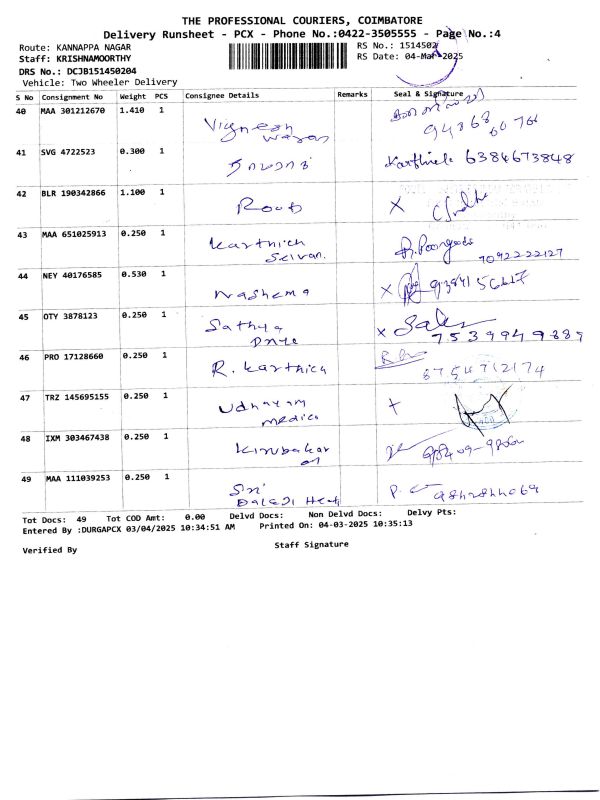 THE PROFESSIONAL COURIERS, COIMBATORE
Delivery Runsheet - PCX - Phone No.:0422-3505555 - Page No.:4
Route: KANNAPPA NAGAR
RS No.: 1514502
Staff: KRISHNAMOORTHY
RS Date: 04-Mar-2025
DRS No.: DCJB151450204
Vehicle: Two Wheeler Delivery
S No Consignment No Weight PCS Consignee Details Remarks Seal & Signature
40 MAA 301212670 1.410 1 Vignesh
41 SVG 4722523 0.300 1 Karthick 6384673848
42 BLR 190342866 1.100 1 X
43 MAA 651025913 0.250 1 Karthick Selvan. 7092222127
44 NEY 40176585 0.530 1 Washema X
45 OTY 3878123 0.250 1 Sathya X
7539949889
46 PRO 17128660 0.250 1 R. Karthick 8754712174
47 TRZ 145695155 0.250 1 Udhayam medico
48 IXM 303467438 0.250 1 Kirubakar an
49 MAA 111039253 0.250 1 Sri Balaji
Tot Docs: 49 Tot COD Amt: 0.00 Delvd Docs: Non Delvd Docs: Delvy Pts:
Entered By :DURGAPCX 03/04/2025 10:34:51 AM Printed On: 04-03-2025 10:35:13
Verified By Staff Signature